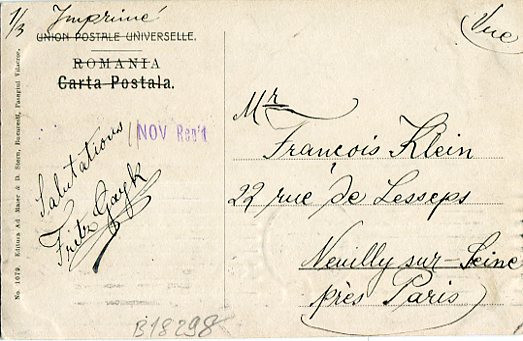 1/3 Imprimé
Vue
UNION POSTALE UNIVERSELLE.
ROMANIA
Carta Postala.
NOV Rep't
Salutations
Fritz Gayk
Mr
François Klein
22 rue de Lesseps
Neuilly sur-Seine
près Paris
No. 1079. Editura Ad. Maier & D. Stern, Bucuresti, Pasagiul Vilacros.
B18298